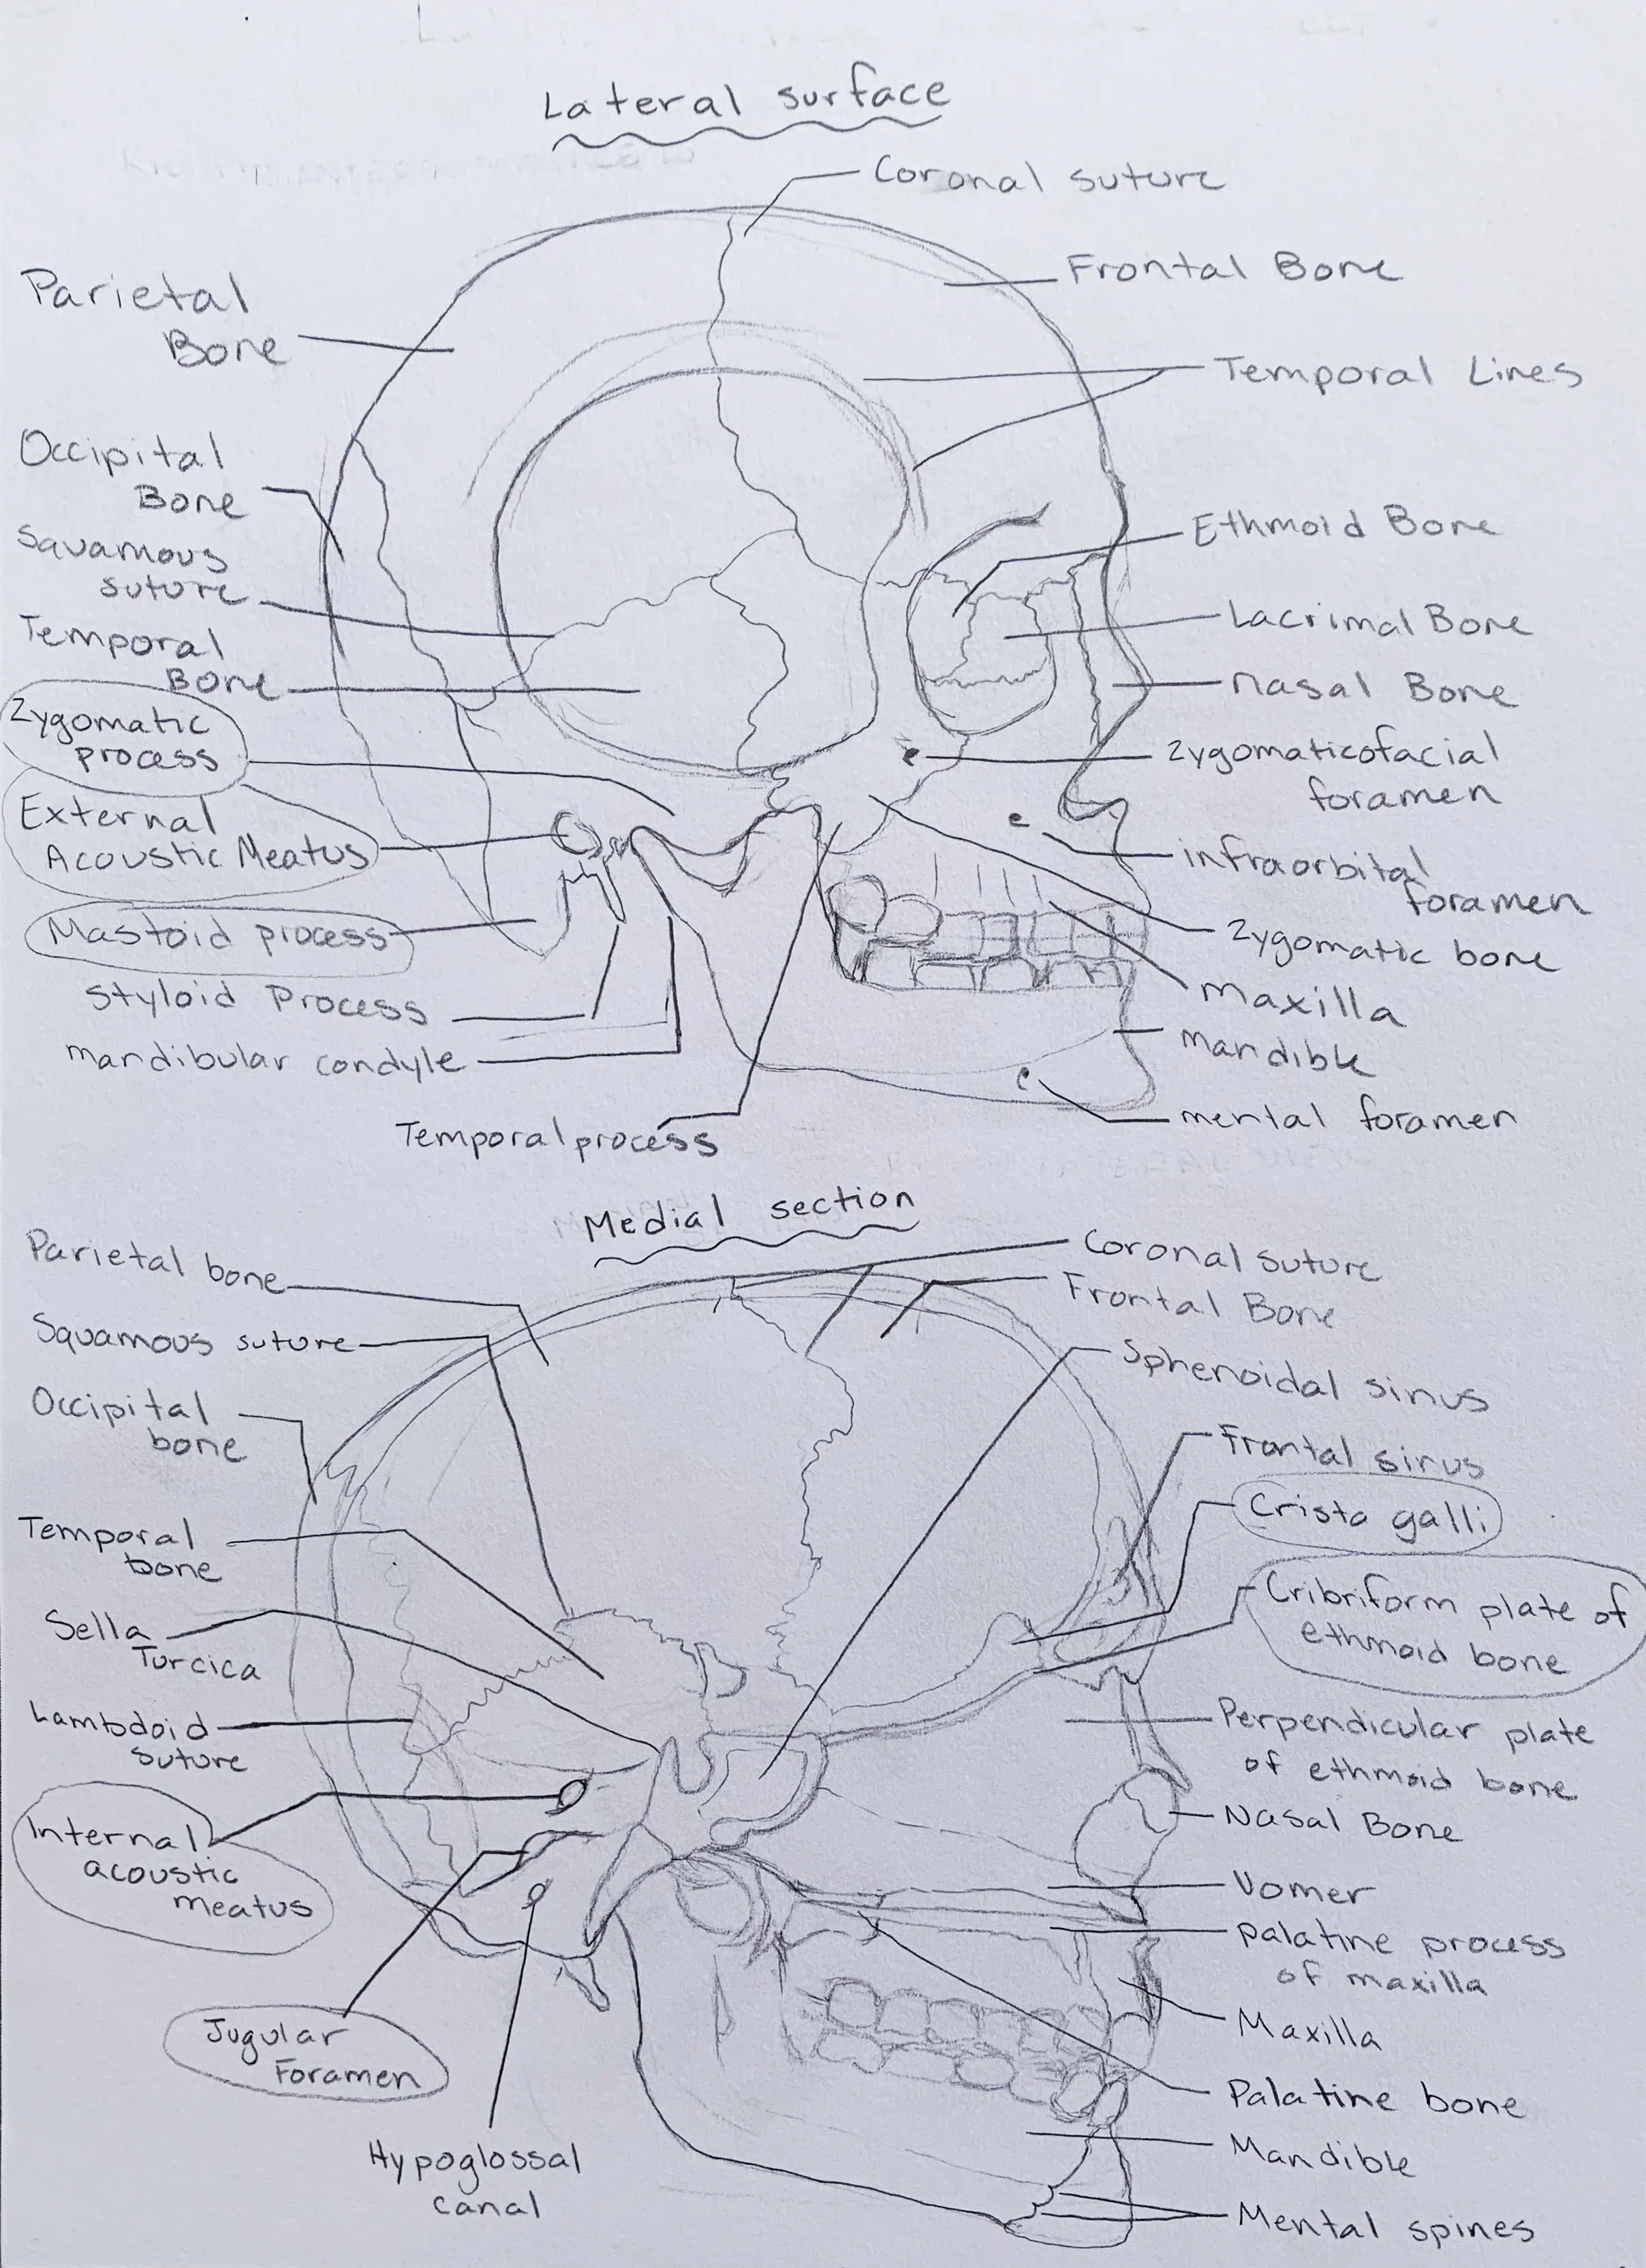 Lateral surface
Coronal suture
Frontal Bone
Parietal
Bone
Temporal Lines
Occipital
Bone
Squamous
suture
Ethmoid Bone
Temporal
Bone
Lacrimal Bone
Nasal Bone
Zygomatic
process
Zygomaticofacial
foramen
External
Acoustic Meatus
infraorbital
foramen
Mastoid process
Zygomatic bone
Styloid Process
Maxilla
mandibular condyle
Mandible
mental foramen
Temporal process
Medial section
Parietal bone
Coronal suture
Frontal Bone
Squamous suture
Sphenoidal sinus
Occipital
bone
Frontal sinus
Crista galli
Temporal
bone
Cribriform plate of
ethmoid bone
Sella
Turcica
Lambdoid
suture
Perpendicular plate
of ethmoid bone
Nasal Bone
Internal
acoustic
meatus
Vomer
Palatine process
of maxilla
Maxilla
Jugular
Foramen
Palatine bone
Hypoglossal
canal
Mandible
Mental spines